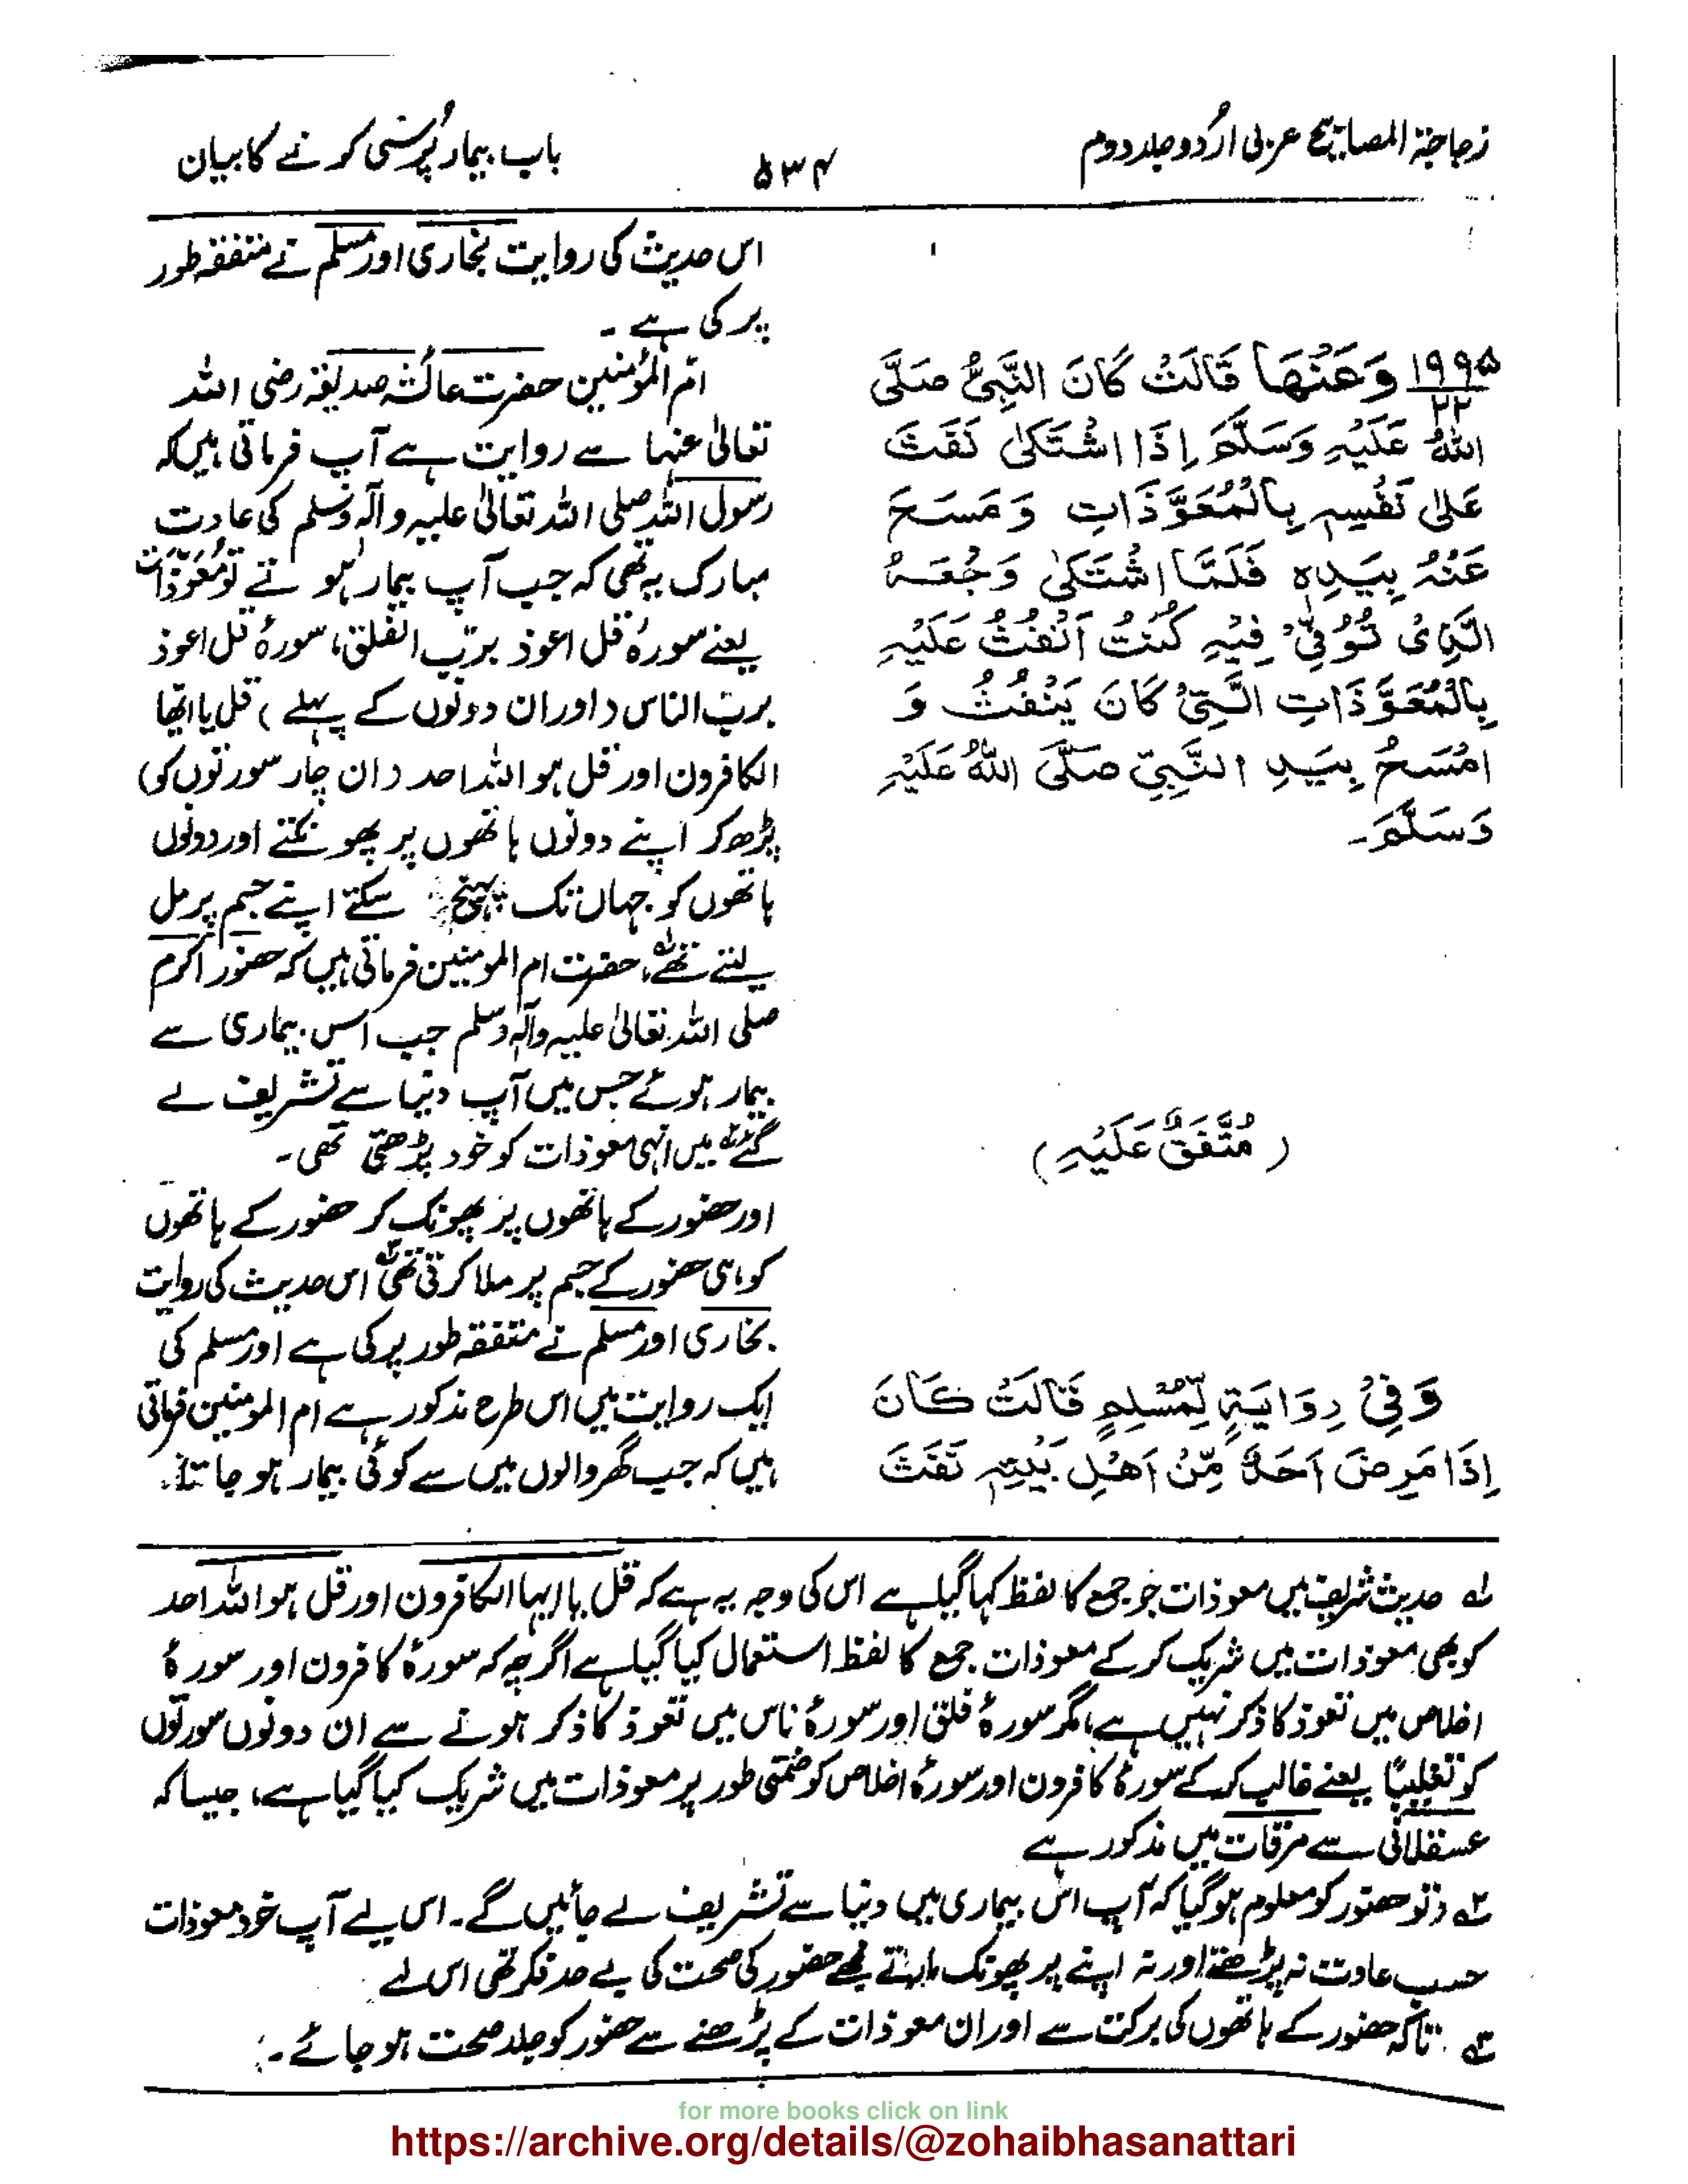 زجاجۃ المصابیح عربی اُردو جلد دوم
۵۳۴
باب بیمار پُرسی کرنے کا بیان
اس حدیث کی روایت بخاری اور مسلم نے متفقہ طور
پر کی ہے ۔
۱۹۹۵/۲۲ وَعَنْهَا قَالَتْ كَانَ النَّبِيُّ صَلَّى
اللهُ عَلَيْهِ وَسَلَّمَ اِذَا اشْتَكٰى نَفَثَ
عَلٰى نَفْسِهٖ بِالْمُعَوَّذَاتِ وَمَسَحَ
عَنْهُ بِيَدِهٖ فَلَمَّا اشْتَكٰى وَجْعَهُ
الَّذِىْ تُوُفِّىَ فِيْهِ كُنْتُ اَنْفُثُ عَلَيْهِ
بِالْمُعَوَّذَاتِ الَّتِىْ كَانَ يَنْفُثُ وَ
اَمْسَحُ بِيَدِ النَّبِيِّ صَلَّى اللهُ عَلَيْهِ
وَسَلَّمَ۔
(مُتَّفَقٌ عَلَيْهِ)
وَفِىْ رِوَايَةٍ لِّمُسْلِمٍ قَالَتْ كَانَ
اِذَا مَرِضَ اَحَدٌ مِّنْ اَهْلِ بَيْتِهٖ نَفَثَ
ام المؤمنین حضرت عائشہ صدیقہ رضی اللہ
تعالیٰ عنہا سے روایت ہے آپ فرماتی ہیں کہ
رسول اللہ صلی اللہ تعالیٰ علیہ وآلہ وسلم کی عادت
مبارک یہ تھی کہ جب آپ بیمار ہوتے تو مُعَوَّذَات
یعنے سورۂ قل اعوذ برب الفلق، سورۂ قل اعوذ
برب الناس (اور ان دونوں کے پہلے) قل یا ایھا
الکافرون اور قل ہو اللہ احد (ان چار سورتوں کو)
پڑھ کر اپنے دونوں ہاتھوں پر پھونکتے اور دونوں
ہاتھوں کو جہاں تک پہنچ سکتے اپنے جسم پر مل
لیتے تھے ۱؎، حضرت ام المومنین فرماتی ہیں کہ حضور اکرم
صلی اللہ تعالیٰ علیہ وآلہ وسلم جب اس بیماری سے
بیمار ہوئے جس میں آپ دنیا سے تشریف لے
گئے ۲؎ میں انہی معوذات کو خود پڑھتی تھی ۔
اور حضور کے ہاتھوں پر پھونک کر حضور کے ہاتھوں
کو ہی حضور کے جسم پر ملا کرتی تھی ۳؎ اس حدیث کی روایت
بخاری اور مسلم نے متفقہ طور پر کی ہے اور مسلم کی
ایک روایت میں اس طرح مذکور ہے ام المومنین فرماتی
ہیں کہ جب گھر والوں میں سے کوئی بیمار ہو جاتا
۱؎ حدیث شریف میں معوذات جو جمع کا لفظ کہا گیا ہے اس کی وجہ یہ ہے کہ قل یا ایہا الکافرون اور قل ہو اللہ احد
کو بھی معوذات میں شریک کر کے معوذات جمع کا لفظ استعمال کیا گیا ہے اگرچہ کہ سورۂ کافرون اور سورۂ
اخلاص میں تعوذ کا ذکر نہیں ہے، مگر سورۂ فلق اور سورۂ ناس میں تعوذ کا ذکر ہونے سے ان دونوں سورتوں
کو تغلیبًا یعنے غالب کر کے سورۂ کافرون اور سورۂ اخلاص کو ضمنی طور پر معوذات میں شریک کیا گیا ہے، جیسا کہ
عسقلانی سے مرقات میں مذکور ہے
۲؎ (تو حضور کو معلوم ہو گیا کہ آپ اس بیماری میں دنیا سے تشریف لے جائیں گے۔ اس لیے آپ خود معوذات
حسب عادت نہ پڑھتے اور نہ اپنے پر پھونک مجھے حضور کی صحت کی بے حد فکر تھی اس لیے
۳؎ تاکہ حضور کے ہاتھوں کی برکت سے اور ان معوذات کے پڑھنے سے حضور کو جلد صحت ہو جائے ۔
for more books click on link
https://archive.org/details/@zohaibhasanattari